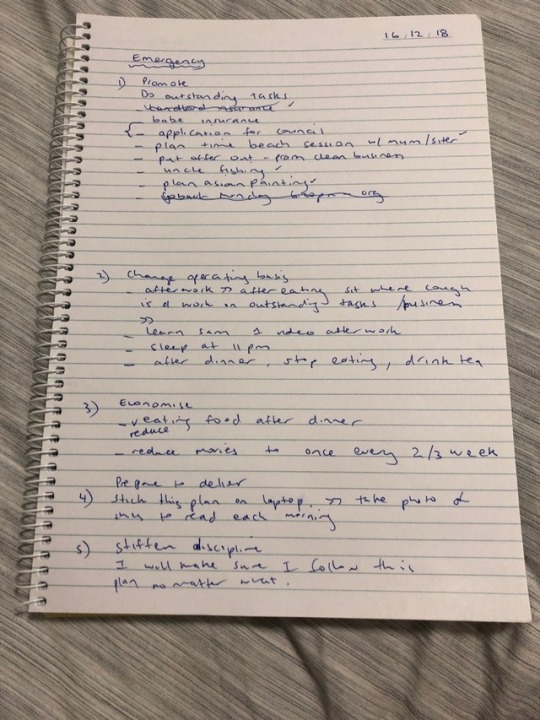 16/12/18
Emergency
1) Promote
Do outstanding tasks
- Landlord insurance ✓
- babe insurance
- application for council
- plan time beach session w/ mum/sister ✓
- put offer out - prom clean business
- uncle fishing ✓
- plan asian painting ✓
- org
2) Change operating basis
- afterwork >> after eating sit where
is & work on outstanding tasks / business
>>
- learn 1 video after work
- sleep at 11 pm
- after dinner, stop eating, drink tea
3) Economise
- reduce eating food after dinner
- reduce movies to once every 2/3 week
Prepare to deliver
4) Stick this plan on laptop. >> take photo of
this to read each morning
5) Stiffen discipline
I will make sure I follow this
plan no matter what.